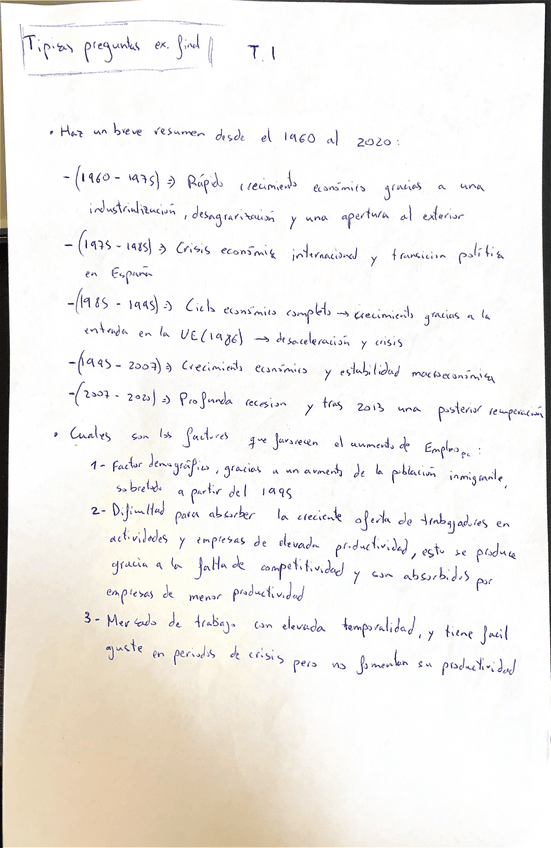 Tipicas preguntas ex. final T.1
• Haz un breve resumen desde el 1960 al 2020:
-(1960 - 1975) => Rápido crecimiento económico gracias a una
industrialización, desagrarización y una apertura al exterior
-(1975 - 1985) => Crisis económica internacional y transicion política
en España
-(1985 - 1995) => Ciclo económico completo → crecimiento gracias a la
entrada en la UE (1986) → desaceleración y crisis
-(1995 - 2007) => Crecimiento económico y estabilidad macroeconómica
-(2007 - 2020) => Profunda recesion y tras 2013 una posterior recuperación
• Cuales son los factores que favorecen el aumento de Empleo pc:
1- Factor demográfico, gracias a un aumento de la población inmigrante,
sobretodo a partir del 1995
2- Dificultad para absorber la creciente oferta de trabajadores en
actividades y empresas de elevada productividad, esto se produce
gracia a la falta de competitividad y son absorbidos por
empresas de menor productividad
3- Mercado de trabajo con elevada temporalidad, y tiene facil
ajuste en periodos de crisis pero no fomentan su productividad